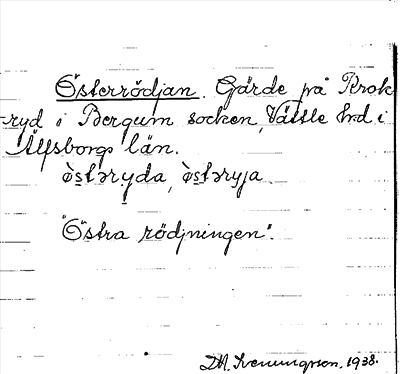 Österrödjan. Gärde på Krok
-ryd i Bergum socken, Vättle hrd. i
Älfsborgs län.
òstəryda, òstəryja
"Östra rödjningen".
D.M. Svenungsson, 1938.